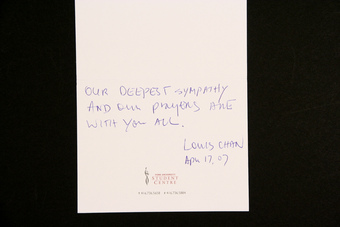 OUR DEEPEST SYMPATHY
AND OUR PRAYERS ARE
WITH YOU ALL.
LOUIS CHAN
APR 17, 07
STUDENT
CENTRE